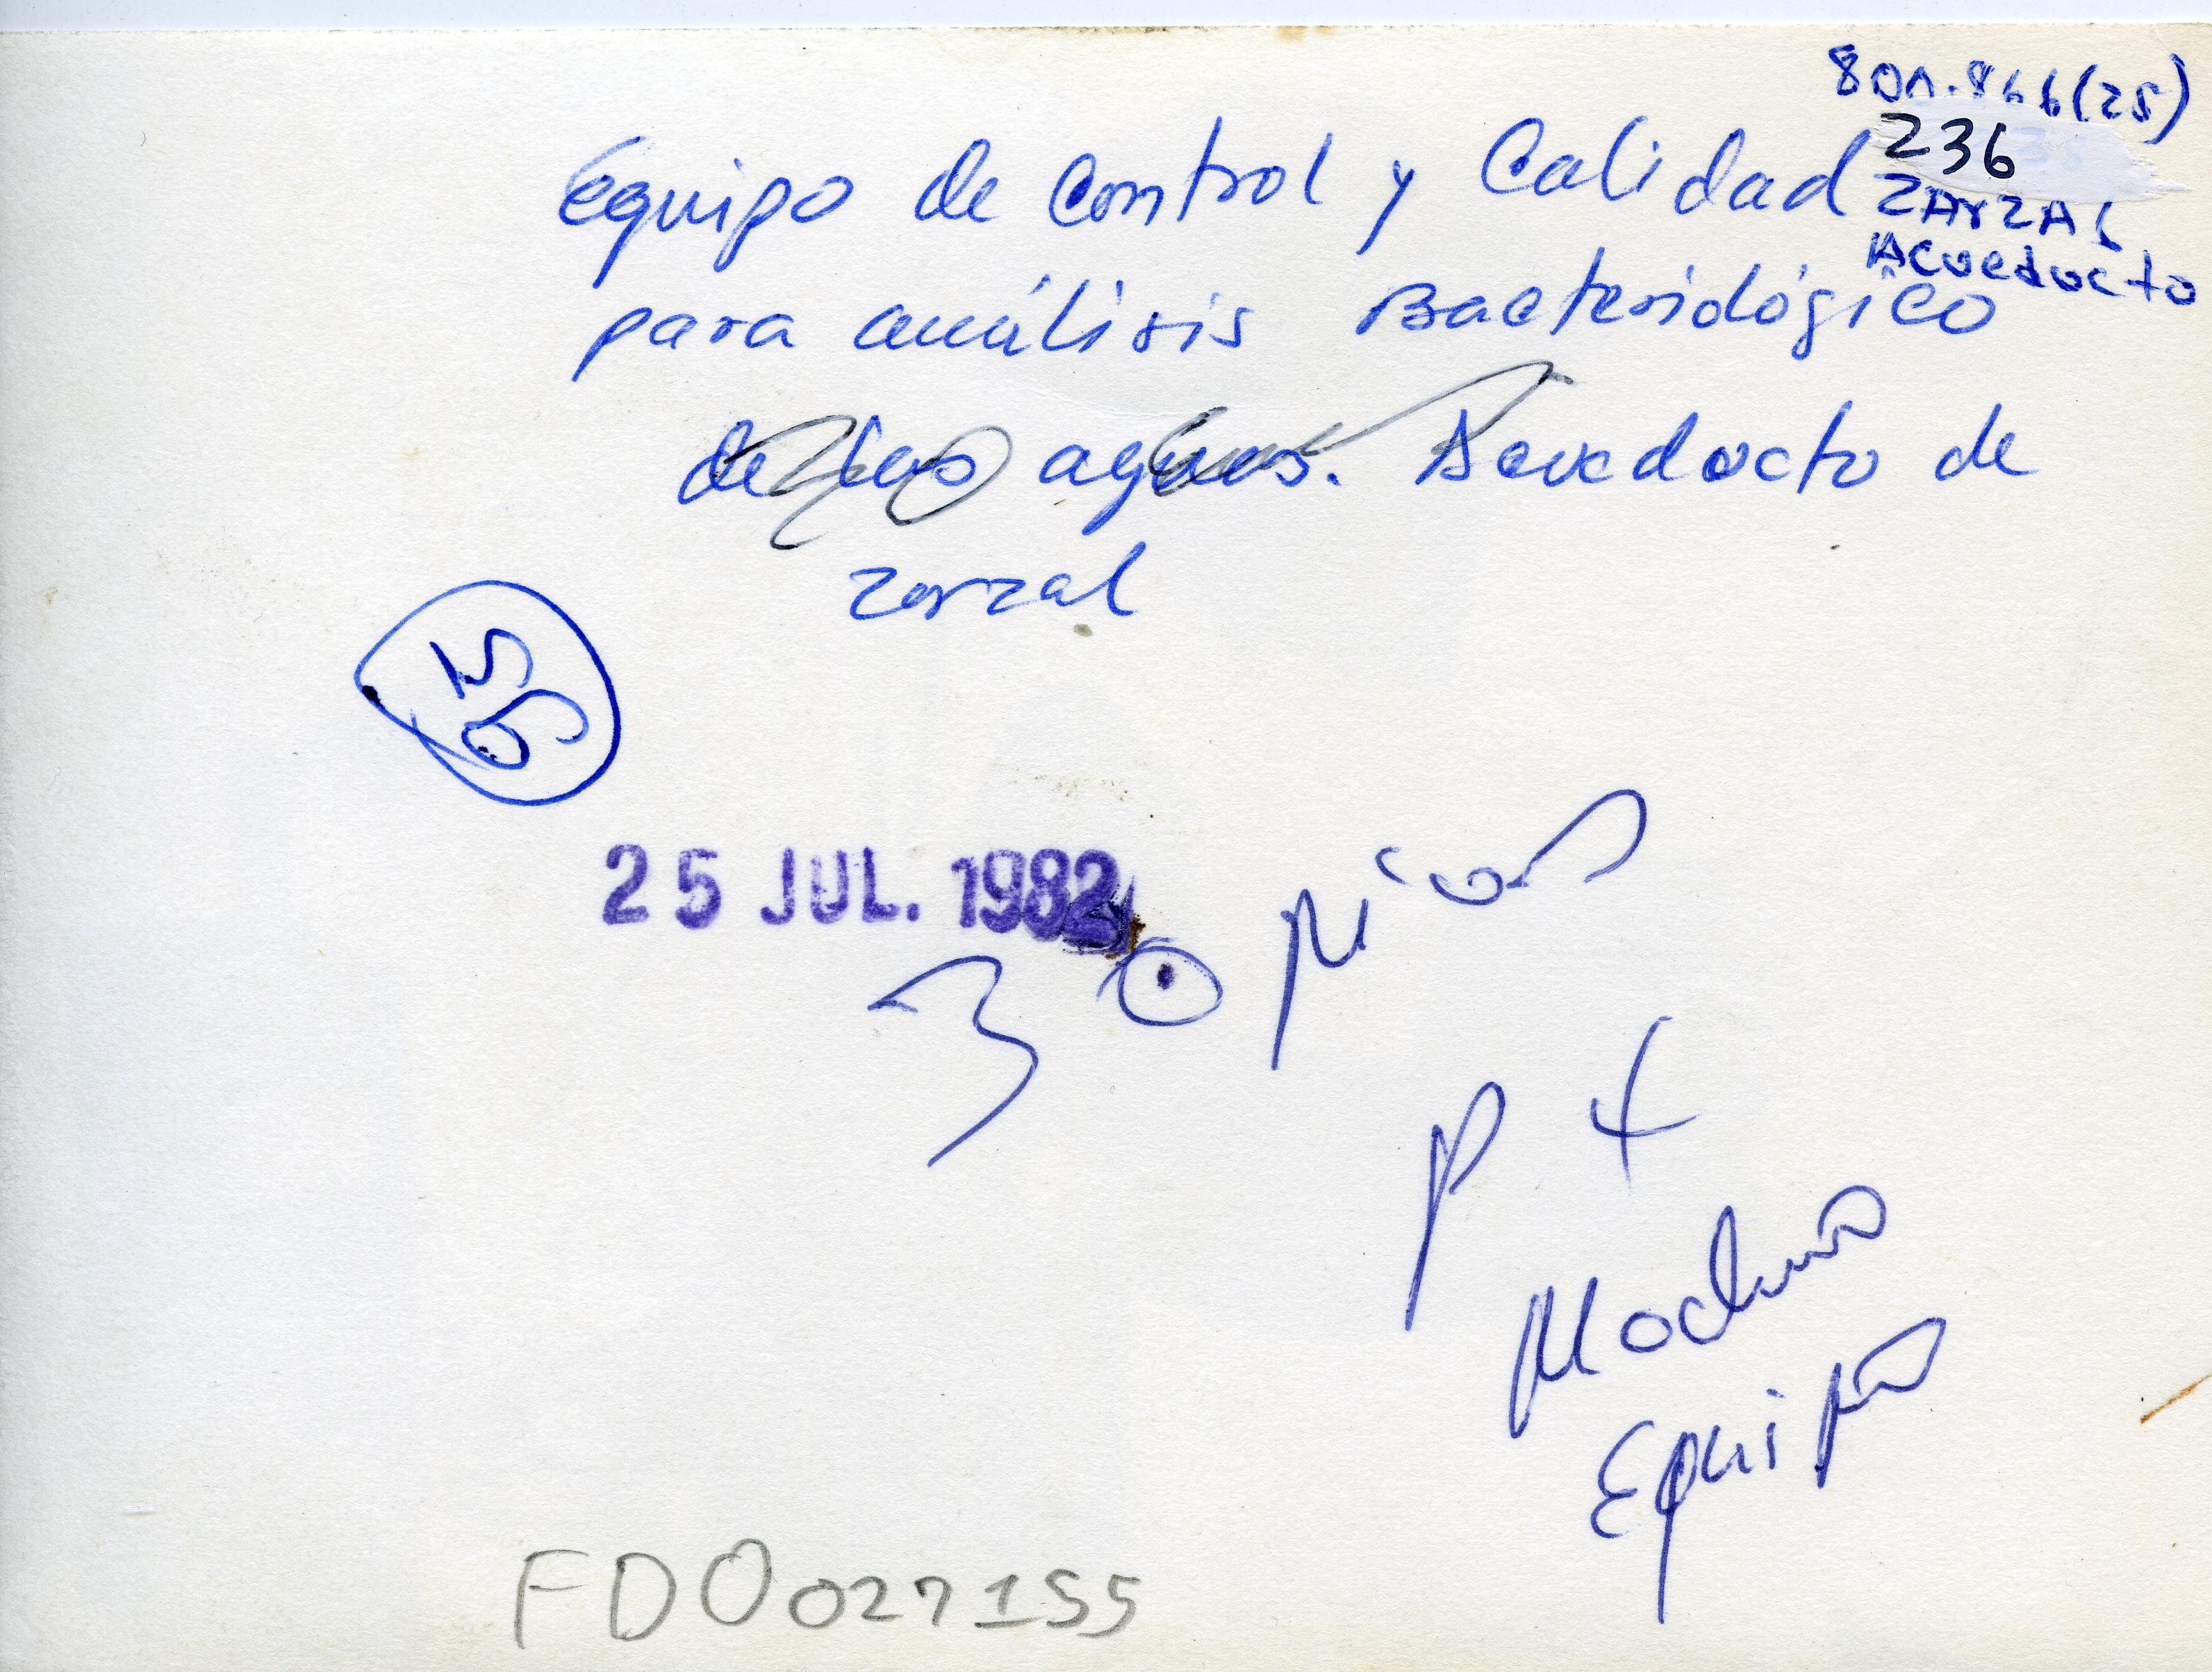 800.866(25)
236
ZArZAL
Acueducto
Equipo de Control y Calidad
para análisis Bacteriológico
de las aguas. Acueducto de
zarzal
25 JUL. 1982
3
Equipo
FDO027155